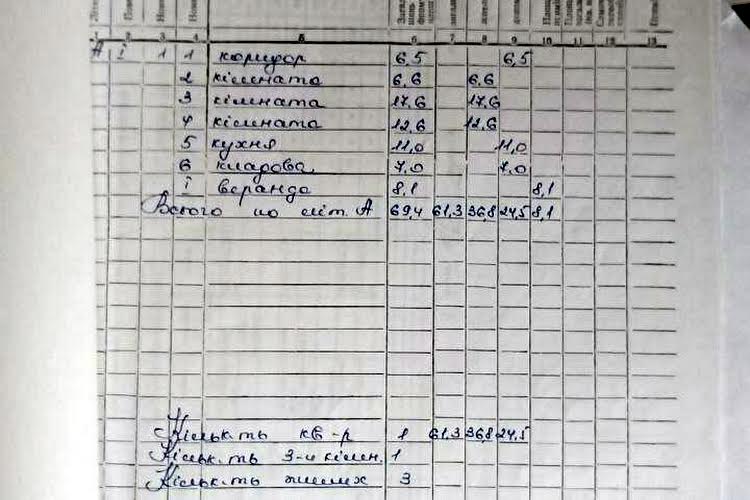 1 2 3 4 5 6 7 8 9 10 11 12 13
А І 1 1 коридор 6,5 6,5
2 кімната 6,6 6,6
3 кімната 17,6 17,6
4 кімната 12,6 12,6
5 кухня 11,0 11,0
6 кладова 7,0 7,0
І веранда 8,1 8,1
Всього по літ. А 69,4 61,3 36,8 24,5 8,1
Кільк-ть кв-р 1 61,3 36,8 24,5
Кільк-ть 3-и кімн. 1
Кільк-ть жилих 3